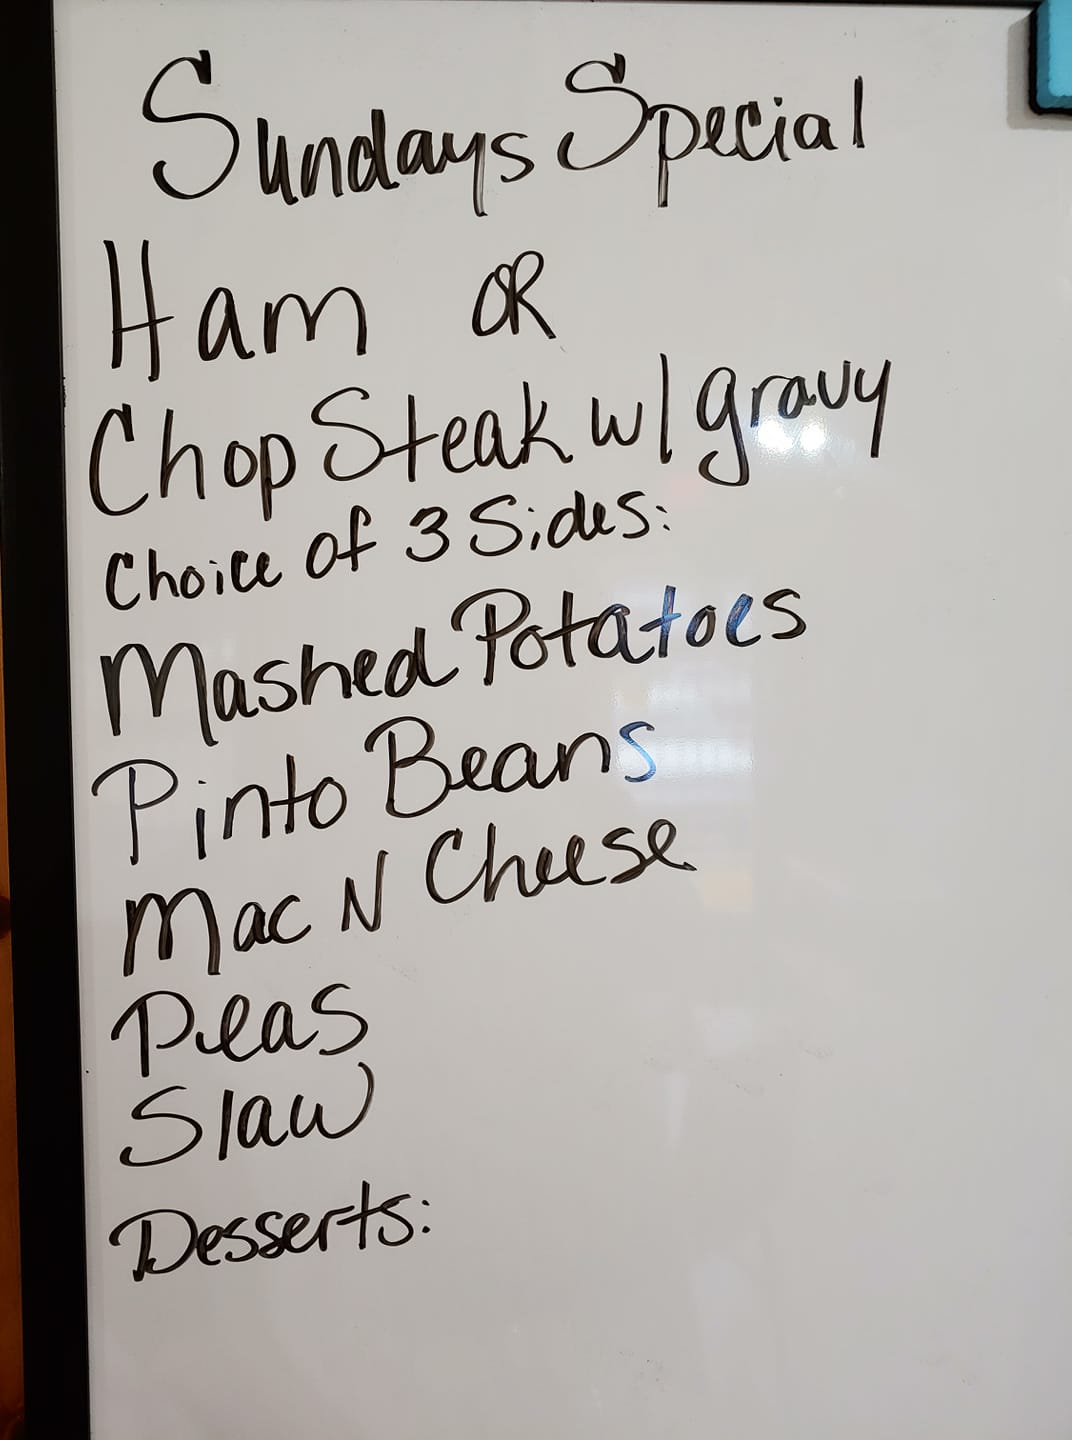 Sundays Special
Ham OR
Chop Steak w/ gravy
Choice of 3 Sides:
Mashed Potatoes
Pinto Beans
Mac N Cheese
Peas
Slaw
Desserts: